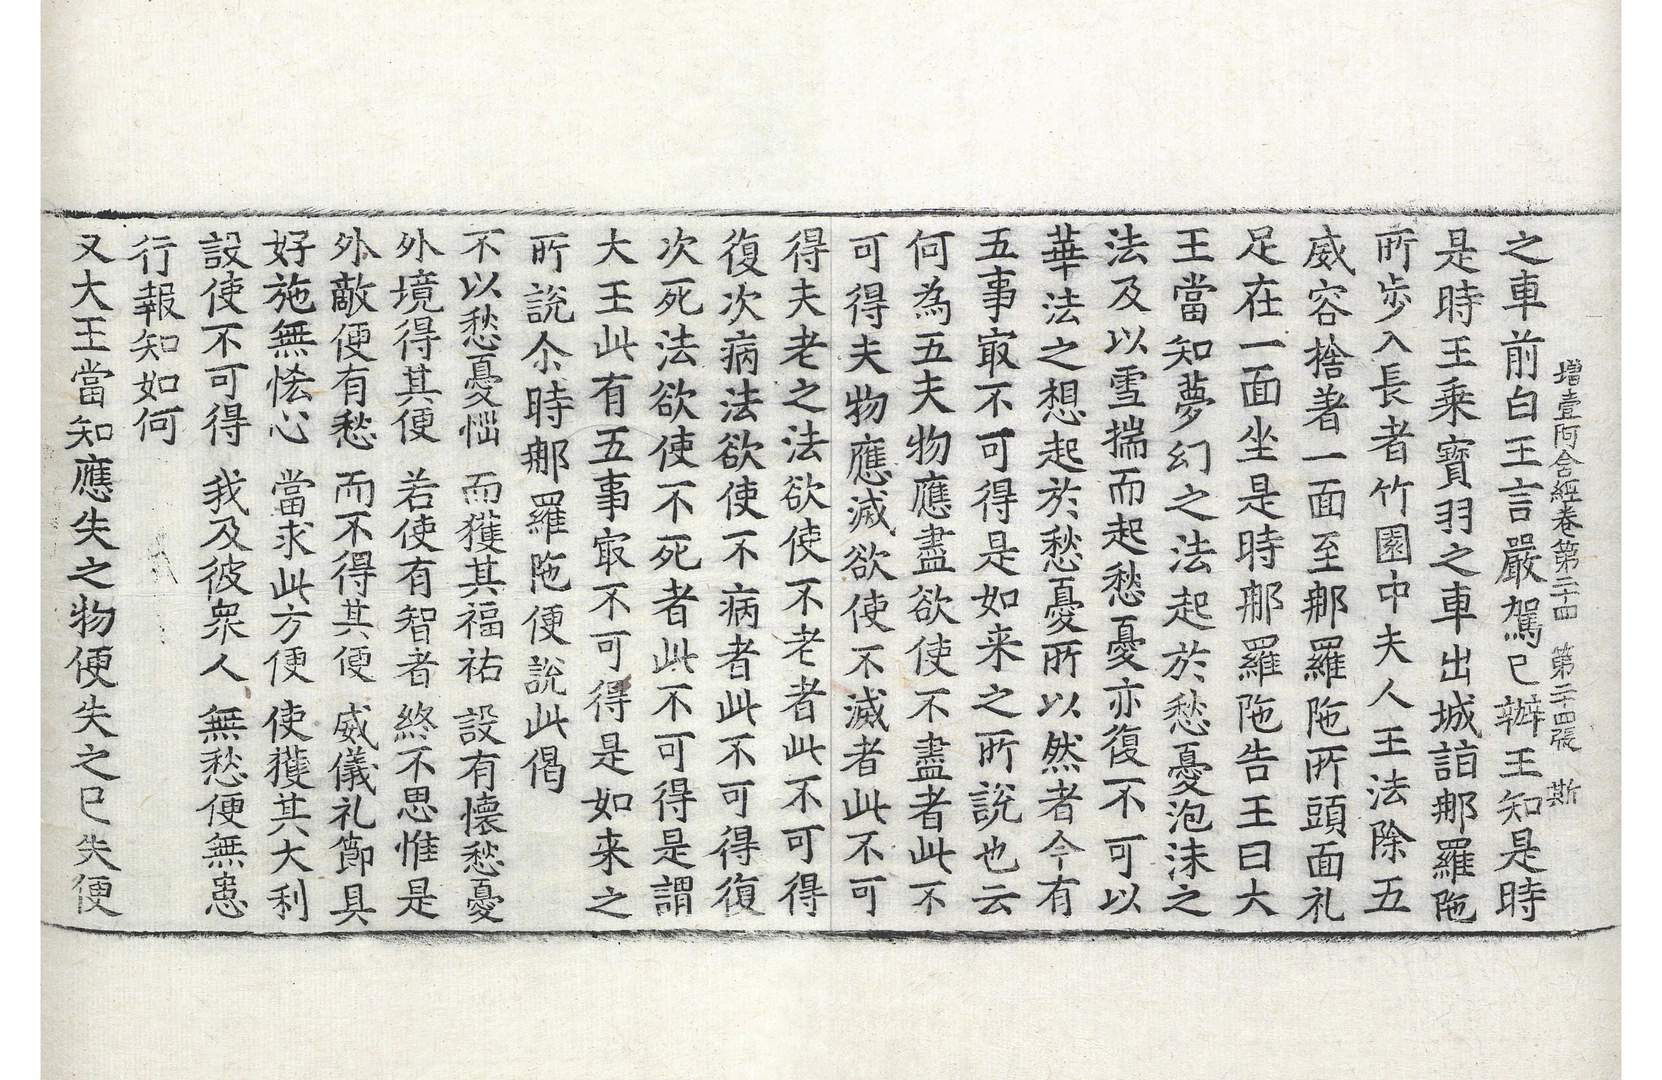 增壹阿含經卷第二十四　第二十四張　斯
之車前白王言嚴駕已辦王知是時
是時王乘寶羽之車出城詣那羅陁
所步入長者竹園中夫人王法除五
威容捨著一面至那羅陁所頭面礼
足在一面坐是時那羅陁告王曰大
王當知夢幻之法起於愁憂泡沫之
法及以雪揣而起愁憂亦復不可以
華法之想起於愁憂所以然者今有
五事㝡不可得是如来之所說也云
何為五夫物應盡欲使不盡者此不
可得夫物應滅欲使不滅者此不可
得夫老之法欲使不老者此不可得
復次病法欲使不病者此不可得復
次死法欲使不死者此不可得是謂
大王此有五事㝡不可得是如来之
所說尒時那羅陁便說此偈
不以愁憂惱　而獲其福祐　設有懷愁憂
外境得其便　若使有智者　終不思惟是
外敵便有愁　而不得其便　威儀礼節具
好施無恡心　當求此方便　使獲其大利
設使不可得　我及彼衆人　無愁便無患
行報知如何
又大王當知應失之物便失之已失便